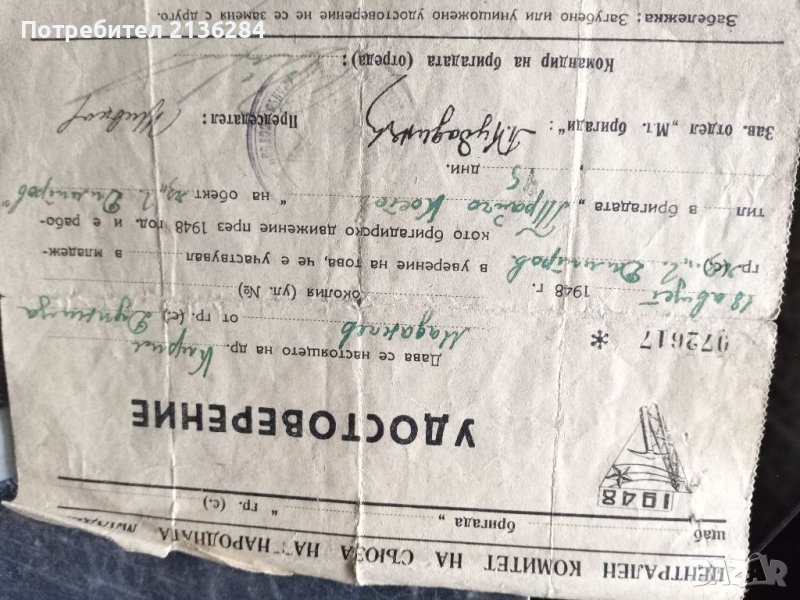 Потребител 2136284
ЦЕНТРАЛЕН КОМИТЕТ НА СЪЮЗА НА НАРОДНАТА
щаб
бригада „ “ гр. (с.)
1948
УДОСТОВЕРЕНИЕ
072617 *
Дава се настоящето на др. Кирил
Маданлев от гр. (с) Дупница
околия (ул. №)
18 август 1948 г.
гр. (с). Г. Димитров в уверение на това, че е участвувал в младеж-
кото бригадирско движение през 1948 год. и е рабо-
тил в бригадата „Трайчо Костов“ на обект Г. Димитров
45 дни.
Зав. отдел „М. бригади“: Председател:
Командир на бригадата (отреда):
Забележка: Загубено или унищожено удостоверение не се заменя с друго.
BAZAR